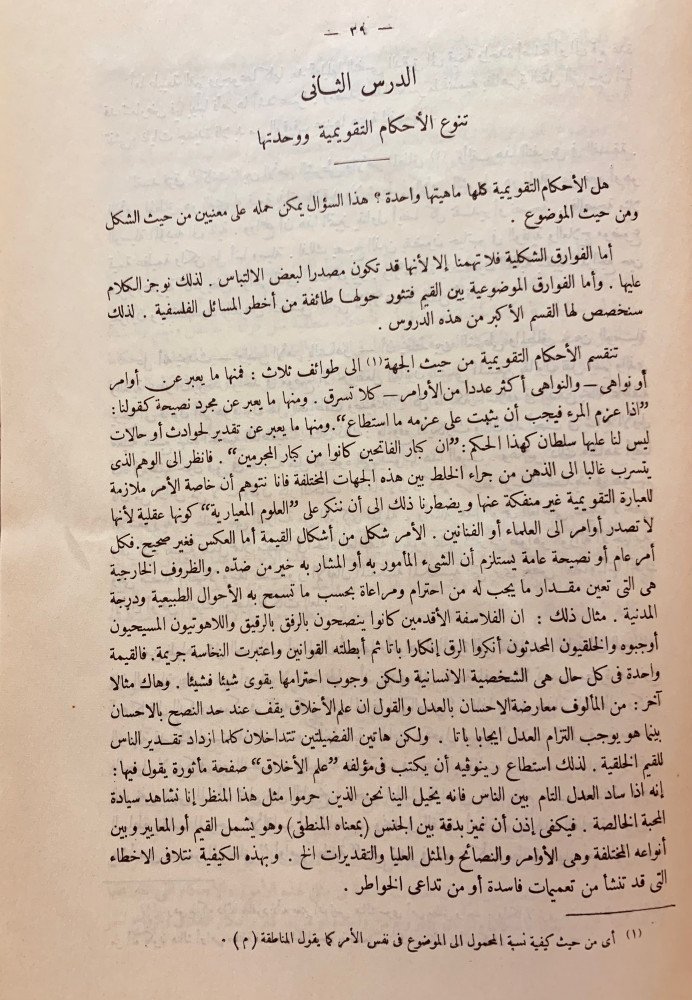 — ٣٩ —
الدرس الثانى
تنوع الأحكام التقويمية ووحدتها
هل الأحكام التقويمية كلها ماهيتها واحدة ؟ هذا السؤال يمكن حمله على معنيين من حيث الشكل
ومن حيث الموضوع .
أما الفوارق الشكلية فلا تهمنا إلا لأنها قد تكون مصدرا لبعض الالتباس . لذلك نوجز الكلام
عليها . وأما الفوارق الموضوعية بين القيم فتثور حولها طائفة من أخطر المسائل الفلسفية . لذلك
سنخصص لها القسم الأكبر من هذه الدروس .
تنقسم الأحكام التقويمية من حيث الجهة (١) الى طوائف ثلاث : فمنها ما يعبر عن أوامر
أو نواهى — والنواهى أكثر عددا من الأوامر — كلا تسرق . ومنها ما يعبر عن مجرد نصيحة كقولنا :
”اذا عزم المرء فيجب أن يثبت على عزمه ما استطاع“. ومنها ما يعبر عن تقدير لحوادث أو حالات
ليس لنا عليها سلطان كهذا الحكم : ”ان كبار الفاتحين كانوا من كبار المجرمين“ . فانظر الى الوهم الذى
يتسرب غالبا الى الذهن من جراء الخلط بين هذه الجهات المختلفة فانا نتوهم أن خاصة الأمر ملازمة
للعبارة التقويمية غير منفكة عنها ويضطرنا ذلك الى أن ننكر على ”العلوم المعيارية“ كونها عقلية لأنها
لا تصدر أوامر الى العلماء أو الفنانين . الأمر شكل من أشكال القيمة أما العكس فغير صحيح . فكل
أمر عام أو نصيحة عامة يستلزم أن الشىء المأمور به أو المشار به خير من ضدّه . والظروف الخارجية
هى التى تعين مقدار ما يجب له من احترام ومراعاة بحسب ما تسمح به الأحوال الطبيعية ودرجة
المدنية . مثال ذلك : ان الفلاسفة الأقدمين كانوا ينصحون بالرفق بالرقيق واللاهوتيون المسيحيون
أوجبوه والخلقيون المحدثون أنكروا الرق إنكارا باتا ثم أبطلته القوانين واعتبرت النخاسة جريمة . فالقيمة
واحدة فى كل حال هى الشخصية الانسانية ولكن وجوب احترامها يقوى شيئا فشيئا . وهاك مثالا
آخر : من المألوف معارضة الاحسان بالعدل والقول ان علم الأخلاق يقف عند حد النصح بالاحسان
بينما هو يوجب التزام العدل ايجابا باتا . ولكن هاتين الفضيلتين تتداخلان كلما ازداد تقدير الناس
للقيم الخلقية . لذلك استطاع رينوڤيه أن يكتب فى مؤلفه ”علم الأخلاق“ صفحة مأثورة يقول فيها :
إنه اذا ساد العدل التام بين الناس فانه يخيل الينا نحن الذين حرموا مثل هذا المنظر إنا نشاهد سيادة
المحبة الخالصة . فيكفى إذن أن نميز بدقة بين الجنس (بمعناه المنطقى) وهو يشمل القيم أو المعايير وبين
أنواعه المختلفة وهى الأوامر والنصائح والمثل العليا والتقديرات الخ . وبهذه الكيفية نتلافى الاخطاء
التى قد تنشأ من تعميمات فاسدة أو من تداعى الخواطر .
(١) أى من حيث كيفية نسبة المحمول الى الموضوع فى نفس الأمر كما يقول المناطقة (م) .